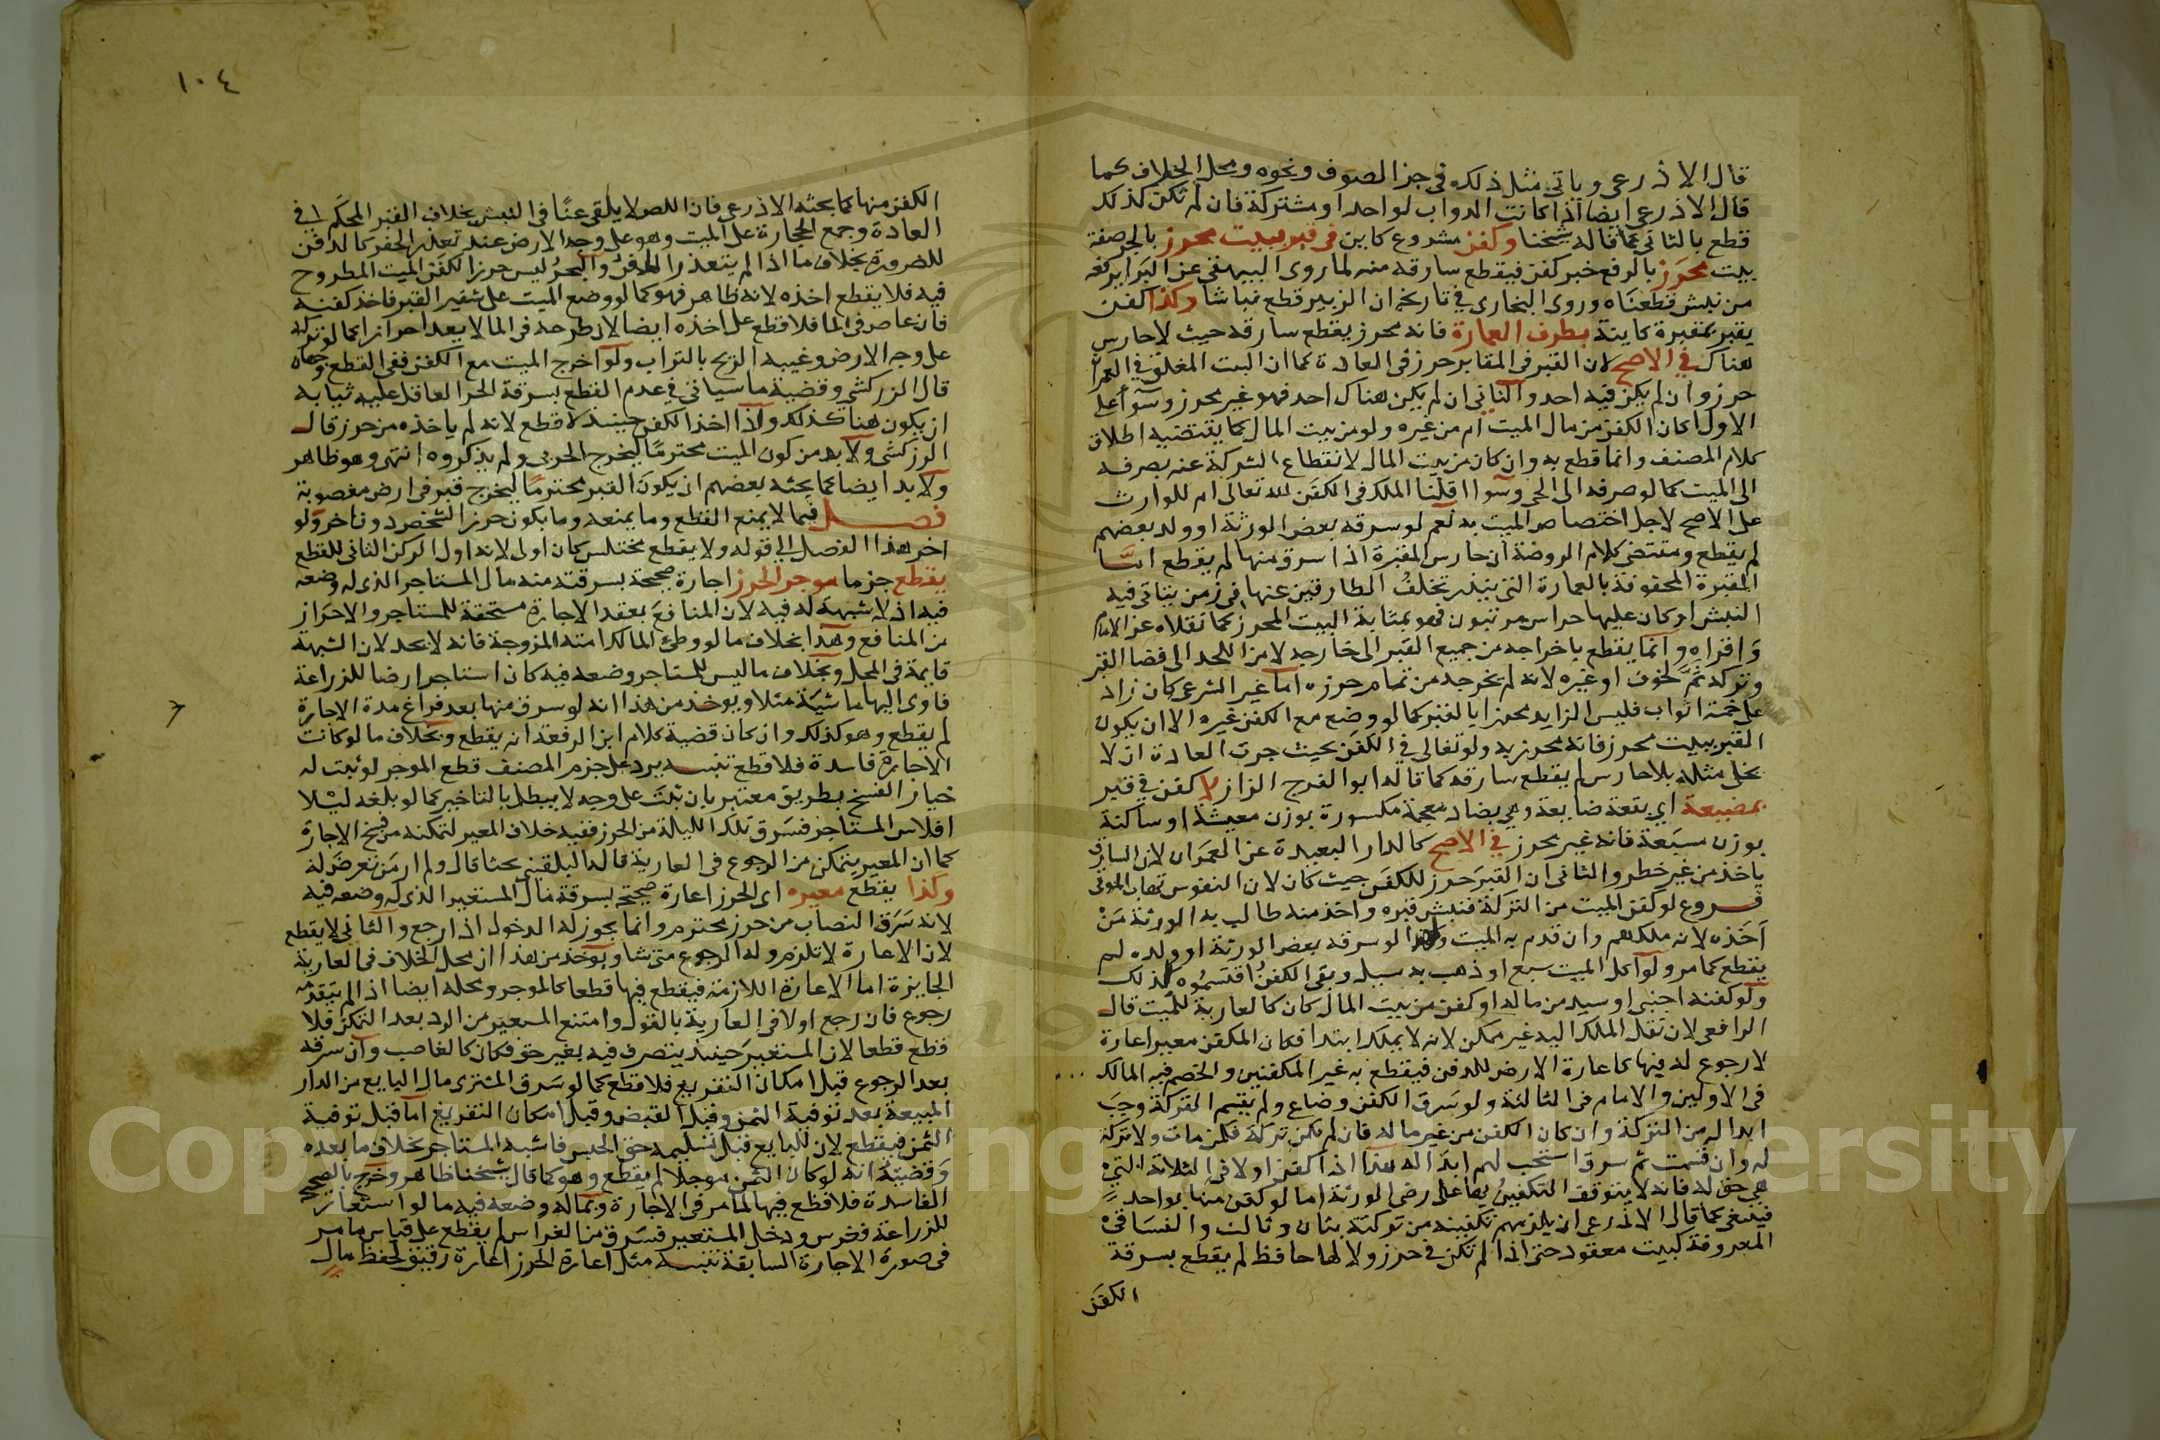 قال الاذرعى وياتى مثل ذلك فى جز الصوف ونحوه ومحل الخلاف كما
قال الاذرعى ايضا اذا كانت الدواب لواحد او مشتركة فان لم تكن كذلك
قطع بالثانى كما قاله شيخنا وكفن مشروع كاين فى قبر ببيت محرز بالجر صفة
بيت محرز بالرفع خبر كفن فيقطع سارقه منه لما روى البيهقى عن البرا يرفعه
من نبش قطعناه وروى البخارى فى تاريخه ان ابن الزبير قطع نباشا وكذا كفن
بقبر بمقبرة كاينة بطرف العمارة فانه محرز يقطع سارقه حيث لا حارس
هناك فى الاصح لان القبر فى المقابر حرز فى العادة كما ان البيت المغلق فى العمران
حرز وان لم يكن فيه احد والثانى ان لم يكن هناك احد فهو غير محرز وسوا على
الاول اكان الكفن من مال الميت ام من غيره ولو من بيت المال كما يقتضيه اطلاق
كلام المصنف وانما قطع به وان كان من بيت المال لانقطاع الشركة عنه بصرفه
الى الميت كما لو صرفه الى الحى وسوا اقلنا الملك فى الكفن لله تعالى ام للوارث
على الاصح لاجل اختصاص الميت به نعم لو سرقه بعض الورثة او ولد بعضهم
لم يقطع ومقتضى كلام الروضة ان حارس المقبرة اذا سرق منها لم يقطع اما
المقبرة المحفوفة بالعمارة التى يندر تخلف الطارقين عنها فى زمن يتاتى فيه
النبش او كان عليها حراس مرتبون فهو بمثابة البيت المحرز كما نقلاه عن الامام
واقراه وانما يقطع باخراجه من جميع القبر الى خارجه لا من اللحد الى فضا القبر
وتركه ثم لخوف او غيره لانه لم يخرجه من تمام حرزه اما غير الشرعى كان زاد
على خمسة اثواب فليس الزايد محرزا بالقبر كما لو وضع مع الكفن غيره الا ان يكون
القبر ببيت محرز فانه محرز به ولو تغالى فى الكفن بحيث جرت العادة ان لا
يخلى مثله بلا حارس لم يقطع سارقه كما قاله ابو الفرج الزاز لا كفن فى قبر
بمضيعة اى بقعة ضايعة وهى بضاد معجمة مكسورة بوزن معيشة او ساكنة
بوزن مسبعة فانه غير محرز فى الاصح كالدار البعيدة عن العمران لان السارق
ياخذ من غير خطر والثانى ان القبر حرز للكفن حيث كان لان النفوس تهاب الموتى
فروع لو كفن الميت من التركة فنبش قبره واخذ منه طالب به الورثة من
اخذه لانه ملكهم وان قدم به الميت ولهذا لو سرقه بعض الورثة او ولده لم
يقطع كما مر ولو اكل الميت سبع او ذهب به سيل وبقى الكفن اقتسموه كذلك
ولو كفنه اجنبى او سيد من ماله او كفن من بيت المال كان كالعارية للميت قال
الرافعى لان نقل الملك اليه غير ممكن لانه لا يملك ابتدا فكان المكفن معيرا اعارة
لا رجوع له فيها كاعارة الارض للدفن فيقطع به غير المكفنين والخصم فيه المالك
فى الاولين والامام فى الثالثة ولو سرق الكفن وضاع ولم يقسم التركة وجب
ابداله من التركة وان كان الكفن من غير ماله فان لم تكن تركة فكمن مات ولا تركة
له وان قسمت ثم سرق استحب لهم ابداله هذا اذا كفن اولا فى الثلاثة التى
هى حق له فانه لا يتوقف التكفين بها على رضى الورثة اما لو كفن منها بواحد
فينبغى كما قال الاذرعى ان يلزمهم تكفينه من تركته بثان وثالث والفساقى
المعروفة كبيت معقود حتى اذا لم تكن فى حرز ولا لها حافظ لم يقطع بسرقة
الكفن
١٠٤
الكفن منها كما بحثه الاذرعى فان اللص لا يلقى عنا فى النبش بخلاف القبر المحكم فى
العادة وجمع الحجارة على الميت وهو على وجه الارض عند تعذر الحفر كالدفن
للضرورة بخلاف ما اذا لم يتعذر الحفر والبحر ليس حرزا لكفن الميت المطروح
فيه فلا يقطع اخذه لانه ظاهر فهو كما لو وضع الميت على شفير القبر فاخذ كفنه
فان غاص فى الما فلا قطع على اخذه ايضا لان طرحه فى الما لا يعد احرازا كما لو تركه
على وجه الارض وغيبه الريح بالتراب ولو اخرج الميت مع الكفن ففى القطع وجهان
قال الزركشى وقضية ما سياتى فى عدم القطع بسرقة الحر العاقل عليه ثيابه
ان يكون هنا كذلك واذا اخذ الكفن حينئذ لا قطع لانه لم ياخذه من حرز قال
الزركشى ولا بد من كون الميت محترما ليخرج الحربى ولم يذكروه انتهى وهو ظاهر
ولا بد ايضا كما بحثه بعضهم ان يكون القبر محترما ليخرج قبر فى ارض مغصوبة
فصل فيما لا يمنع القطع وما يمنعه وما يكون حرز الشخص دون اخر ولو
اخر هذا الفصل الى قوله ولا يقطع مختلس كان اولى لانه اول الركن الثانى للقطع
يقطع جزما موجر الحرز اجارة صحيحة بسرقته منه مال المستاجر الذى له وضعه
فيه اذ لا شبهة له فيه لان المنافع بعقد الاجارة مستحقة للمستاجر والاحراز
من المنافع وهذا بخلاف ما لو وطئ المالك امته المزوجة فانه لا يحد لان الشبهة
قايمة فى المحل وبخلاف ما ليس للمستاجر وضعه فيه كان استاجر ارضا للزراعة
فاوى اليها ماشية مثلا ويوخذ من هذا انه لو سرق منها بعد فراغ مدة الاجارة
لم يقطع وهو كذلك وان كان قضية كلام ابن الرفعة انه يقطع وبخلاف ما لو كانت
الاجارة فاسدة فلا قطع تنبيه يرد على جزم المصنف قطع الموجر لو ثبت له
خيار الفسخ بطريق معتبر بان ثبت على وجه لا يبطل بالتاخير كما لو بلغه ليلا
افلاس المستاجر فسرق تلك الليلة من الحرز ففيه خلاف المعير لتمكنه من فسخ الاجارة
كما ان المعير يتمكن من الرجوع فى العارية قاله البلقينى بحثا قال ولم ار من تعرض له
وكذا يقطع معيره اى الحرز اعارة صحيحة بسرقة مال المستعير الذى له وضعه فيه
لانه سرق النصاب من حرز محترم وانما يجوز له الدخول اذا رجع والثانى لا يقطع
لان الاعارة لا تلزم وله الرجوع متى شا ويوخذ من هذا ان محل الخلاف فى العارية
الجايزة اما الاعارة اللازمة فيقطع فيها قطعا كالموجر ومحله ايضا اذا لم يتقدمه
رجوع فان رجع اولا فى العارية بالقول وامتنع المستعير من الرد بعد التمكن فلا
قطع قطعا لان المستعير حينئذ يتصرف فيه بغير حق فكان كالغاصب وان سرقه
بعد الرجوع قبل امكان التفريغ فلا قطع كما لو سرق المشترى مال البايع من الدار
المبيعة بعد توفية الثمن وقبل القبض وقبل امكان التفريغ اما قبل توفية
الثمن فيقطع لان للبايع قبل تسليمه حق الحبس فاشبه المستاجر بخلاف ما بعده
وقضيته انه لو كان الثمن موجلا لم يقطع وهو كما قال شيخنا ظاهر وخرج بالصحيحة
الفاسدة فلا قطع فيها لما مر فى الاجارة وبماله وضعه فيه ما لو استعار
للزراعة فغرس ودخل المستعير فسرق من الغراس لم يقطع على قياس ما مر
فى صورة الاجارة السابقة تنبيه مثل اعارة الحرز اعارة رقيق لحفظ مال